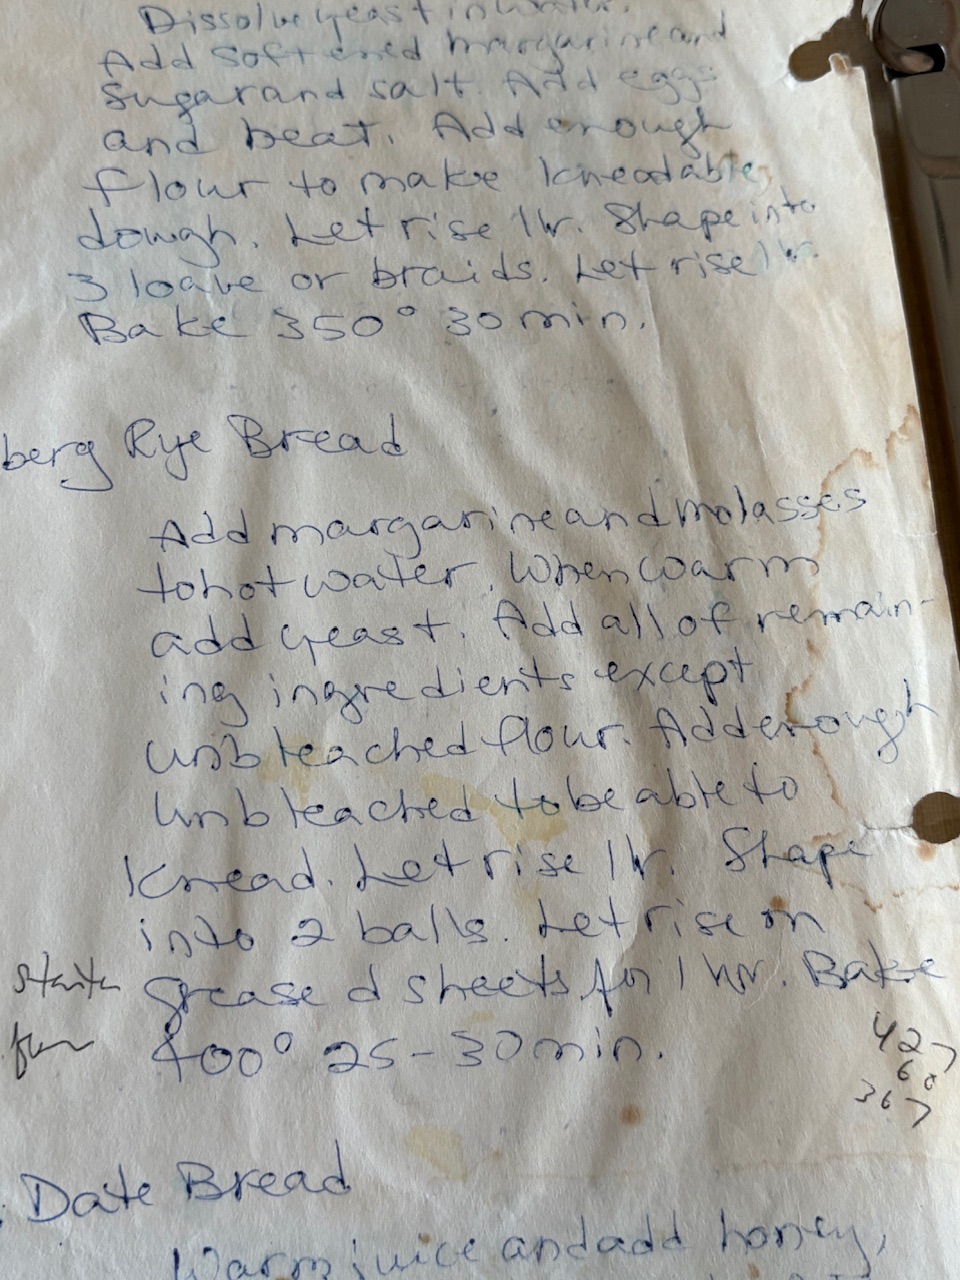 Dissolve yeast in water.
Add softened margarine and
sugar and salt. Add eggs
and beat. Add enough
flour to make kneadable
dough. Let rise 1 hr. Shape into
3 loave or braids. Let rise 1 hr.
Bake 350° 30 min.
berg Rye Bread
Add margarine and molasses
to hot water. When warm
add yeast. Add all of remain-
ing ingredients except
unbleached flour. Add enough
unbleached to be able to
knead. Let rise 1 hr. Shape
into 2 balls. Let rise on
greased sheets for 1 hr. Bake
400° 25-30 min.
427
60
367
Date Bread
Warm juice and add honey,